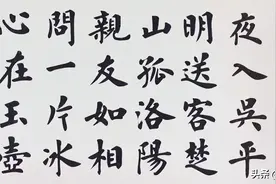 夜入吳平
明送客楚
山孤洛陽
親友如相
問一片冰
心在玉壺
头条